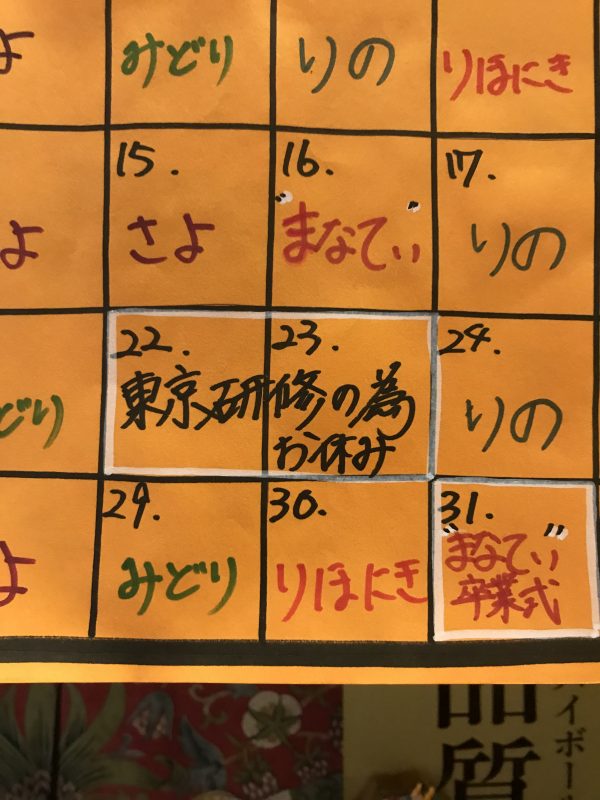 よ みどり りの りほにき
15. 16. 17.
よ さよ "まなてぃ" りの
22. 23. 24.
どり 東京研修の為 りの
お休み
29. 30. 31.
よ みどり りほにき "まなてぃ"
卒業式
イボー
品質